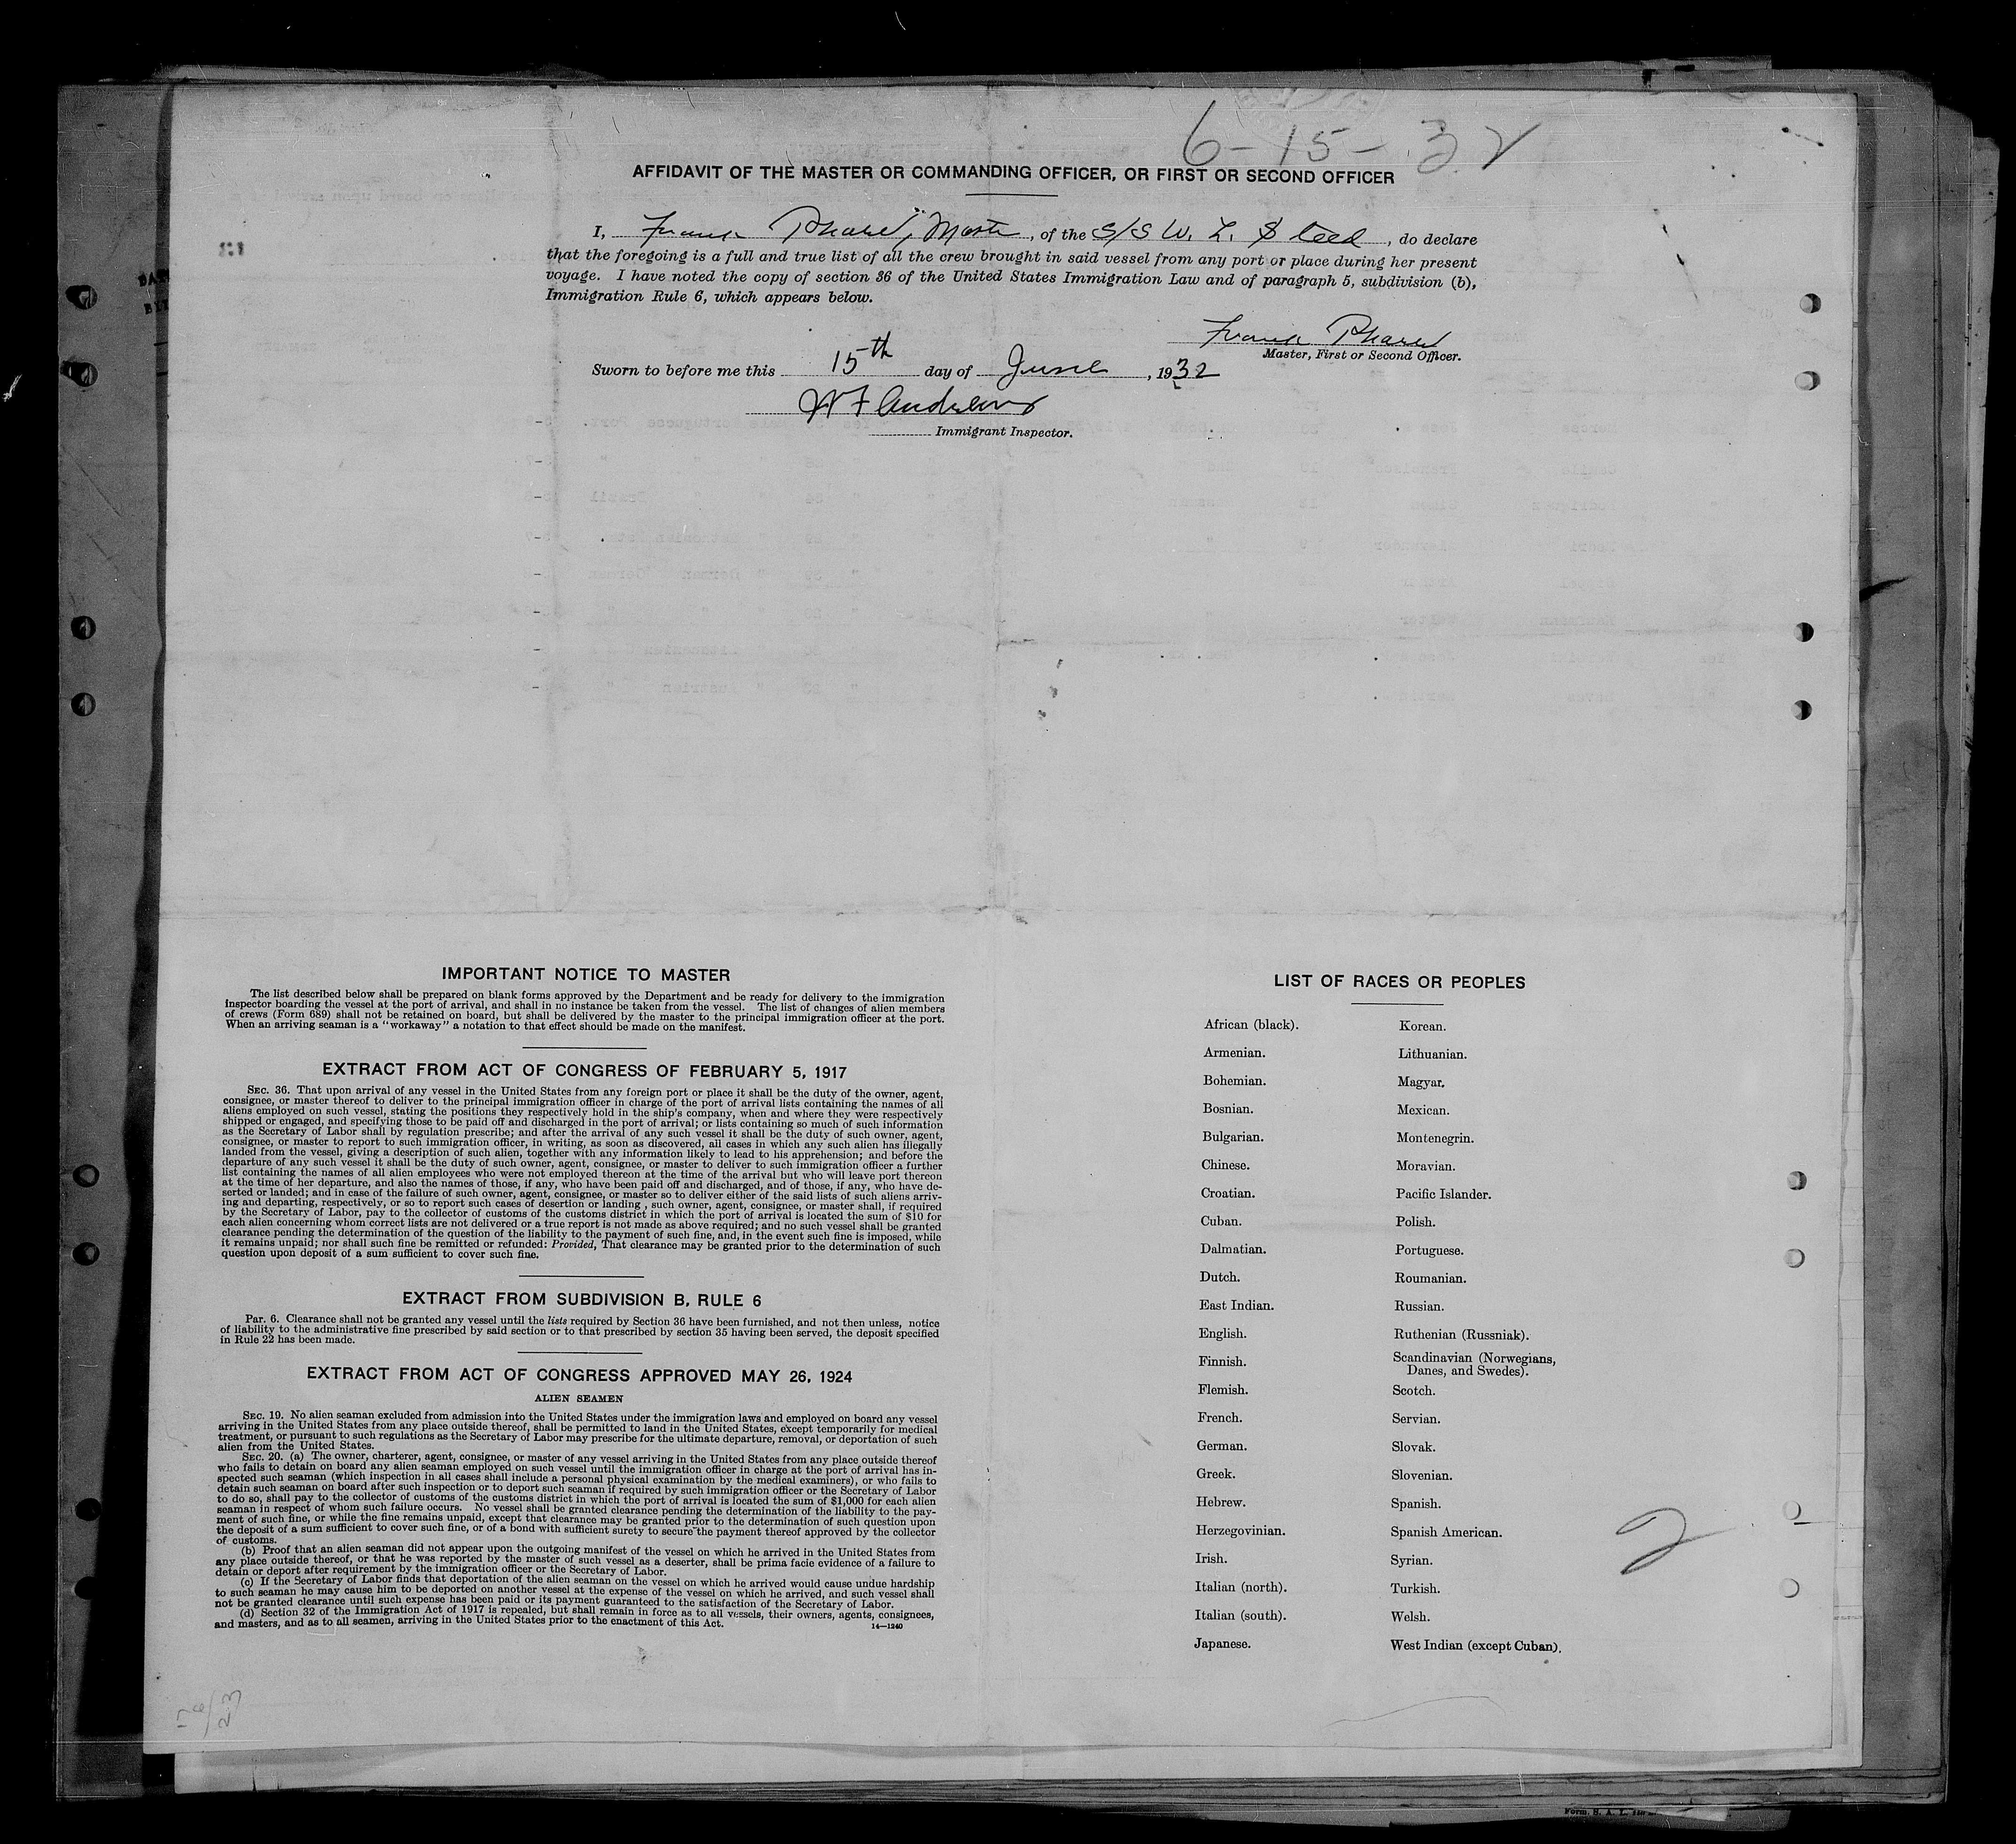 6-15-32
AFFIDAVIT OF THE MASTER OR COMMANDING OFFICER, OR FIRST OR SECOND OFFICER
I, Frank , Master, of the S/S W. L. Steed, do declare
that the foregoing is a full and true list of all the crew brought in said vessel from any port or place during her present
voyage. I have noted the copy of section 36 of the United States Immigration Law and of paragraph 5, subdivision (b),
Immigration Rule 6, which appears below.
Frank
Master, First or Second Officer.
Sworn to before me this 15th day of June, 1932
W F Andrews
Immigrant Inspector.
IMPORTANT NOTICE TO MASTER
The list described below shall be prepared on blank forms approved by the Department and be ready for delivery to the immigration
inspector boarding the vessel at the port of arrival, and shall in no instance be taken from the vessel. The list of changes of alien members
of crews (Form 689) shall not be retained on board, but shall be delivered by the master to the principal immigration officer at the port.
When an arriving seaman is a "workaway" a notation to that effect should be made on the manifest.
EXTRACT FROM ACT OF CONGRESS OF FEBRUARY 5, 1917
SEC. 36. That upon arrival of any vessel in the United States from any foreign port or place it shall be the duty of the owner, agent,
consignee, or master thereof to deliver to the principal immigration officer in charge of the port of arrival lists containing the names of all
aliens employed on such vessel, stating the positions they respectively hold in the ship's company, when and where they were respectively
shipped or engaged, and specifying those to be paid off and discharged in the port of arrival; or lists containing so much of such information
as the Secretary of Labor shall by regulation prescribe; and after the arrival of any such vessel it shall be the duty of such owner, agent,
consignee, or master to report to such immigration officer, in writing, as soon as discovered, all cases in which any such alien has illegally
landed from the vessel, giving a description of such alien, together with any information likely to lead to his apprehension; and before the
departure of any such vessel it shall be the duty of such owner, agent, consignee, or master to deliver to such immigration officer a further
list containing the names of all alien employees who were not employed thereon at the time of the arrival but who will leave port thereon
at the time of her departure, and also the names of those, if any, who have been paid off and discharged, and of those, if any, who have de-
serted or landed; and in case of the failure of such owner, agent, consignee, or master so to deliver either of the said lists of such aliens arriv-
ing and departing, respectively, or so to report such cases of desertion or landing, such owner, agent, consignee, or master shall, if required
by the Secretary of Labor, pay to the collector of customs of the customs district in which the port of arrival is located the sum of $10 for
each alien concerning whom correct lists are not delivered or a true report is not made as above required; and no such vessel shall be granted
clearance pending the determination of the question of the liability to the payment of such fine, and, in the event such fine is imposed, while
it remains unpaid; nor shall such fine be remitted or refunded: Provided, That clearance may be granted prior to the determination of such
question upon deposit of a sum sufficient to cover such fine.
EXTRACT FROM SUBDIVISION B, RULE 6
Par. 6. Clearance shall not be granted any vessel until the lists required by Section 36 have been furnished, and not then unless, notice
of liability to the administrative fine prescribed by said section or to that prescribed by section 35 having been served, the deposit specified
in Rule 22 has been made.
EXTRACT FROM ACT OF CONGRESS APPROVED MAY 26, 1924
ALIEN SEAMEN
SEC. 19. No alien seaman excluded from admission into the United States under the immigration laws and employed on board any vessel
arriving in the United States from any place outside thereof, shall be permitted to land in the United States, except temporarily for medical
treatment, or pursuant to such regulations as the Secretary of Labor may prescribe for the ultimate departure, removal, or deportation of such
alien from the United States.
SEC. 20. (a) The owner, charterer, agent, consignee, or master of any vessel arriving in the United States from any place outside thereof
who fails to detain on board any alien seaman employed on such vessel until the immigration officer in charge at the port of arrival has in-
spected such seaman (which inspection in all cases shall include a personal physical examination by the medical examiners), or who fails to
detain such seaman on board after such inspection or to deport such seaman if required by such immigration officer or the Secretary of Labor
to do so, shall pay to the collector of customs of the customs district in which the port of arrival is located the sum of $1,000 for each alien
seaman in respect of whom such failure occurs. No vessel shall be granted clearance pending the determination of the liability to the pay-
ment of such fine, or while the fine remains unpaid, except that clearance may be granted prior to the determination of such question upon
the deposit of a sum sufficient to cover such fine, or of a bond with sufficient surety to secure the payment thereof approved by the collector
of customs.
(b) Proof that an alien seaman did not appear upon the outgoing manifest of the vessel on which he arrived in the United States from
any place outside thereof, or that he was reported by the master of such vessel as a deserter, shall be prima facie evidence of a failure to
detain or deport after requirement by the immigration officer or the Secretary of Labor.
(c) If the Secretary of Labor finds that deportation of the alien seaman on the vessel on which he arrived would cause undue hardship
to such seaman he may cause him to be deported on another vessel at the expense of the vessel on which he arrived, and such vessel shall
not be granted clearance until such expense has been paid or its payment guaranteed to the satisfaction of the Secretary of Labor.
(d) Section 32 of the Immigration Act of 1917 is repealed, but shall remain in force as to all vessels, their owners, agents, consignees,
and masters, and as to all seamen, arriving in the United States prior to the enactment of this Act.
14—1240
LIST OF RACES OR PEOPLES
African (black).
Armenian.
Bohemian.
Bosnian.
Bulgarian.
Chinese.
Croatian.
Cuban.
Dalmatian.
Dutch.
East Indian.
English.
Finnish.
Flemish.
French.
German.
Greek.
Hebrew.
Herzegovinian.
Irish.
Italian (north).
Italian (south).
Japanese.
Korean.
Lithuanian.
Magyar.
Mexican.
Montenegrin.
Moravian.
Pacific Islander.
Polish.
Portuguese.
Roumanian.
Russian.
Ruthenian (Russniak).
Scandinavian (Norwegians,
Danes, and Swedes).
Scotch.
Servian.
Slovak.
Slovenian.
Spanish.
Spanish American.
Syrian.
Turkish.
Welsh.
West Indian (except Cuban).
2